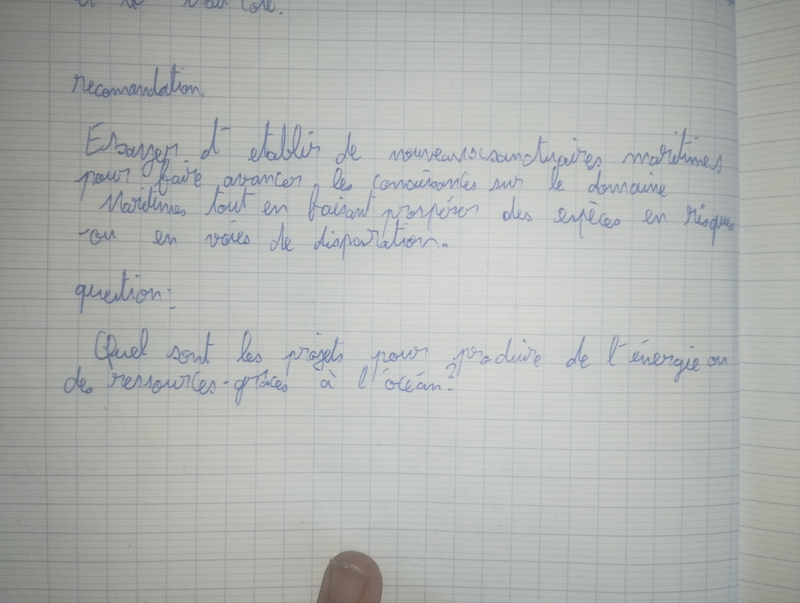 recomandation.
Essayer d'etablir de nouveaux sanctuaires maritimes
pour faire avancer les sur le domaine
Maritimes tout en faisant prospérer des espèces en risques
-ou en voies de disparation.
question:
Quel sont les projets pour produire de l'énergie ou
des ressources grâces à l'océan?